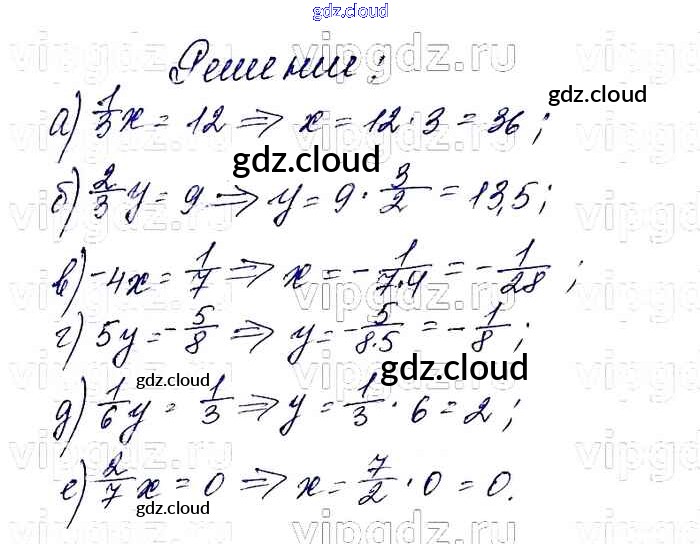 gdz.cloud
vipgdz.ru vipgdz.ru
Решение:
gdz.cloud
а) 1/3 x = 12 => x = 12 · 3 = 36;
gdz.cloud
б) 2/3 y = 9 => y = 9 · 3/2 = 13,5;
в) -4x = 1/7 => x = - 1/(7·4) = - 1/28;
г) 5y = - 5/8 => y = - 5/(8·5) = - 1/8;
gdz.cloud gdz.cloud
д) 1/6 y = 1/3 => y = 1/3 · 6 = 2;
е) 2/7 x = 0 => x = 7/2 · 0 = 0.
gdz.cloud gdz.cloud